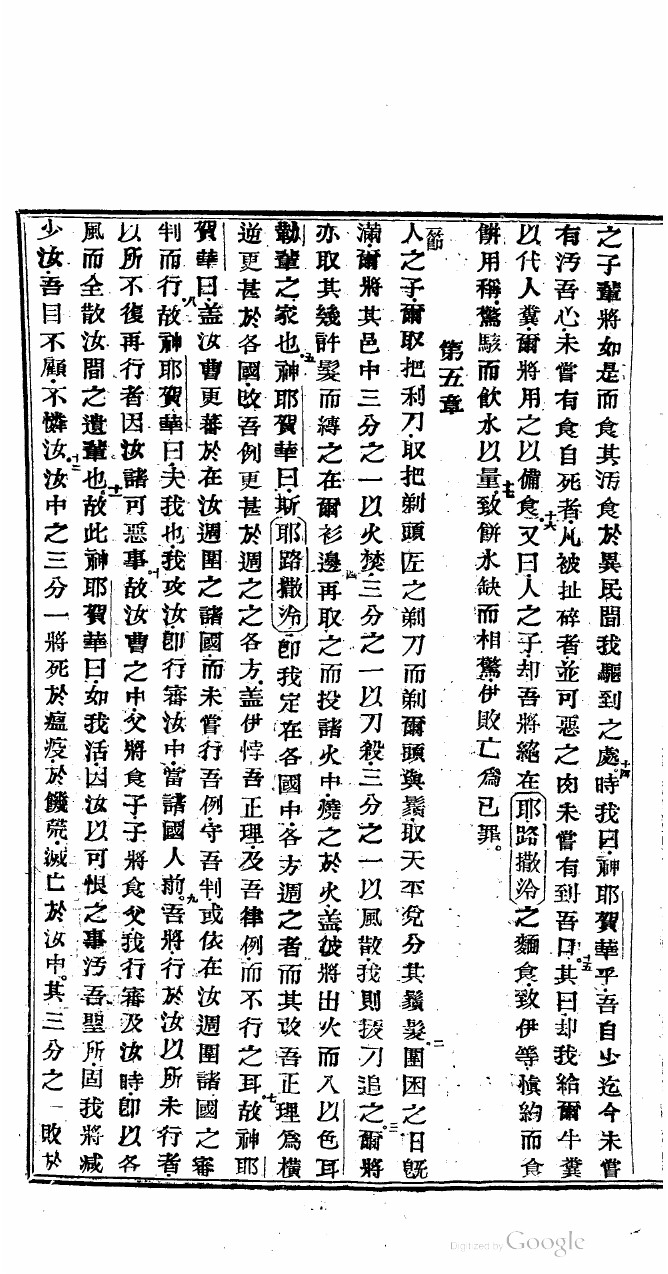 之子輩將如是而食其汚食於異民間我驅到之處十四時我曰神耶賀華乎吾自少迄今未嘗
有汚吾心未嘗有食自死者凡被扯碎者並可惡之肉未嘗有到吾口十五其曰却我給爾牛糞
以代人糞爾將用之以備食十六又曰人之子却吾將絕在耶路撒冷之麵食致伊等愼約而食
餅用稱驚駭而飲水以量十七致餅水缺而相驚伊敗亡爲已罪。
第五章
一節人之子爾取把利刀取把剃頭匠之剃刀而剃爾頭與鬚取天平兌分其鬚髮二圍困之日旣
滿爾將其邑中三分之一以火焚三分之一以刀殺三分之一以風散我則拔刀追之三爾將
亦取其幾許髮而縛之在爾衫邊四再取之而投諸火中燒之於火盖彼將出火而入以色耳
勒輩之家也五神耶賀華曰斯耶路撒冷卽我定在各國中各方週之者六而其改吾正理爲橫
逆更甚於各國改吾例更甚於週之之各方盖伊悖吾正理及吾律例而不行之耳七故神耶
賀華曰盖汝曹更蕃於在汝週圍之諸國而未嘗行吾例守吾判或依在汝週圍諸國之審
判而行八故神耶賀華曰夫我也我攻汝卽行審汝中當諸國人前。九吾將行於汝以所未行者
以所不復再行者因汝諸可惡事十故汝曹之中父將食子子將食父我行審及汝時卽以各
風而全散汝間之遺輩也十一故此神耶賀華曰如我活因汝以可恨之事汚吾聖所固我將減
少汝吾目不顧不憐汝十二汝中之三分一將死於瘟疫於饑荒滅亡於汝中。其三分之一敗於
Digitized by Google